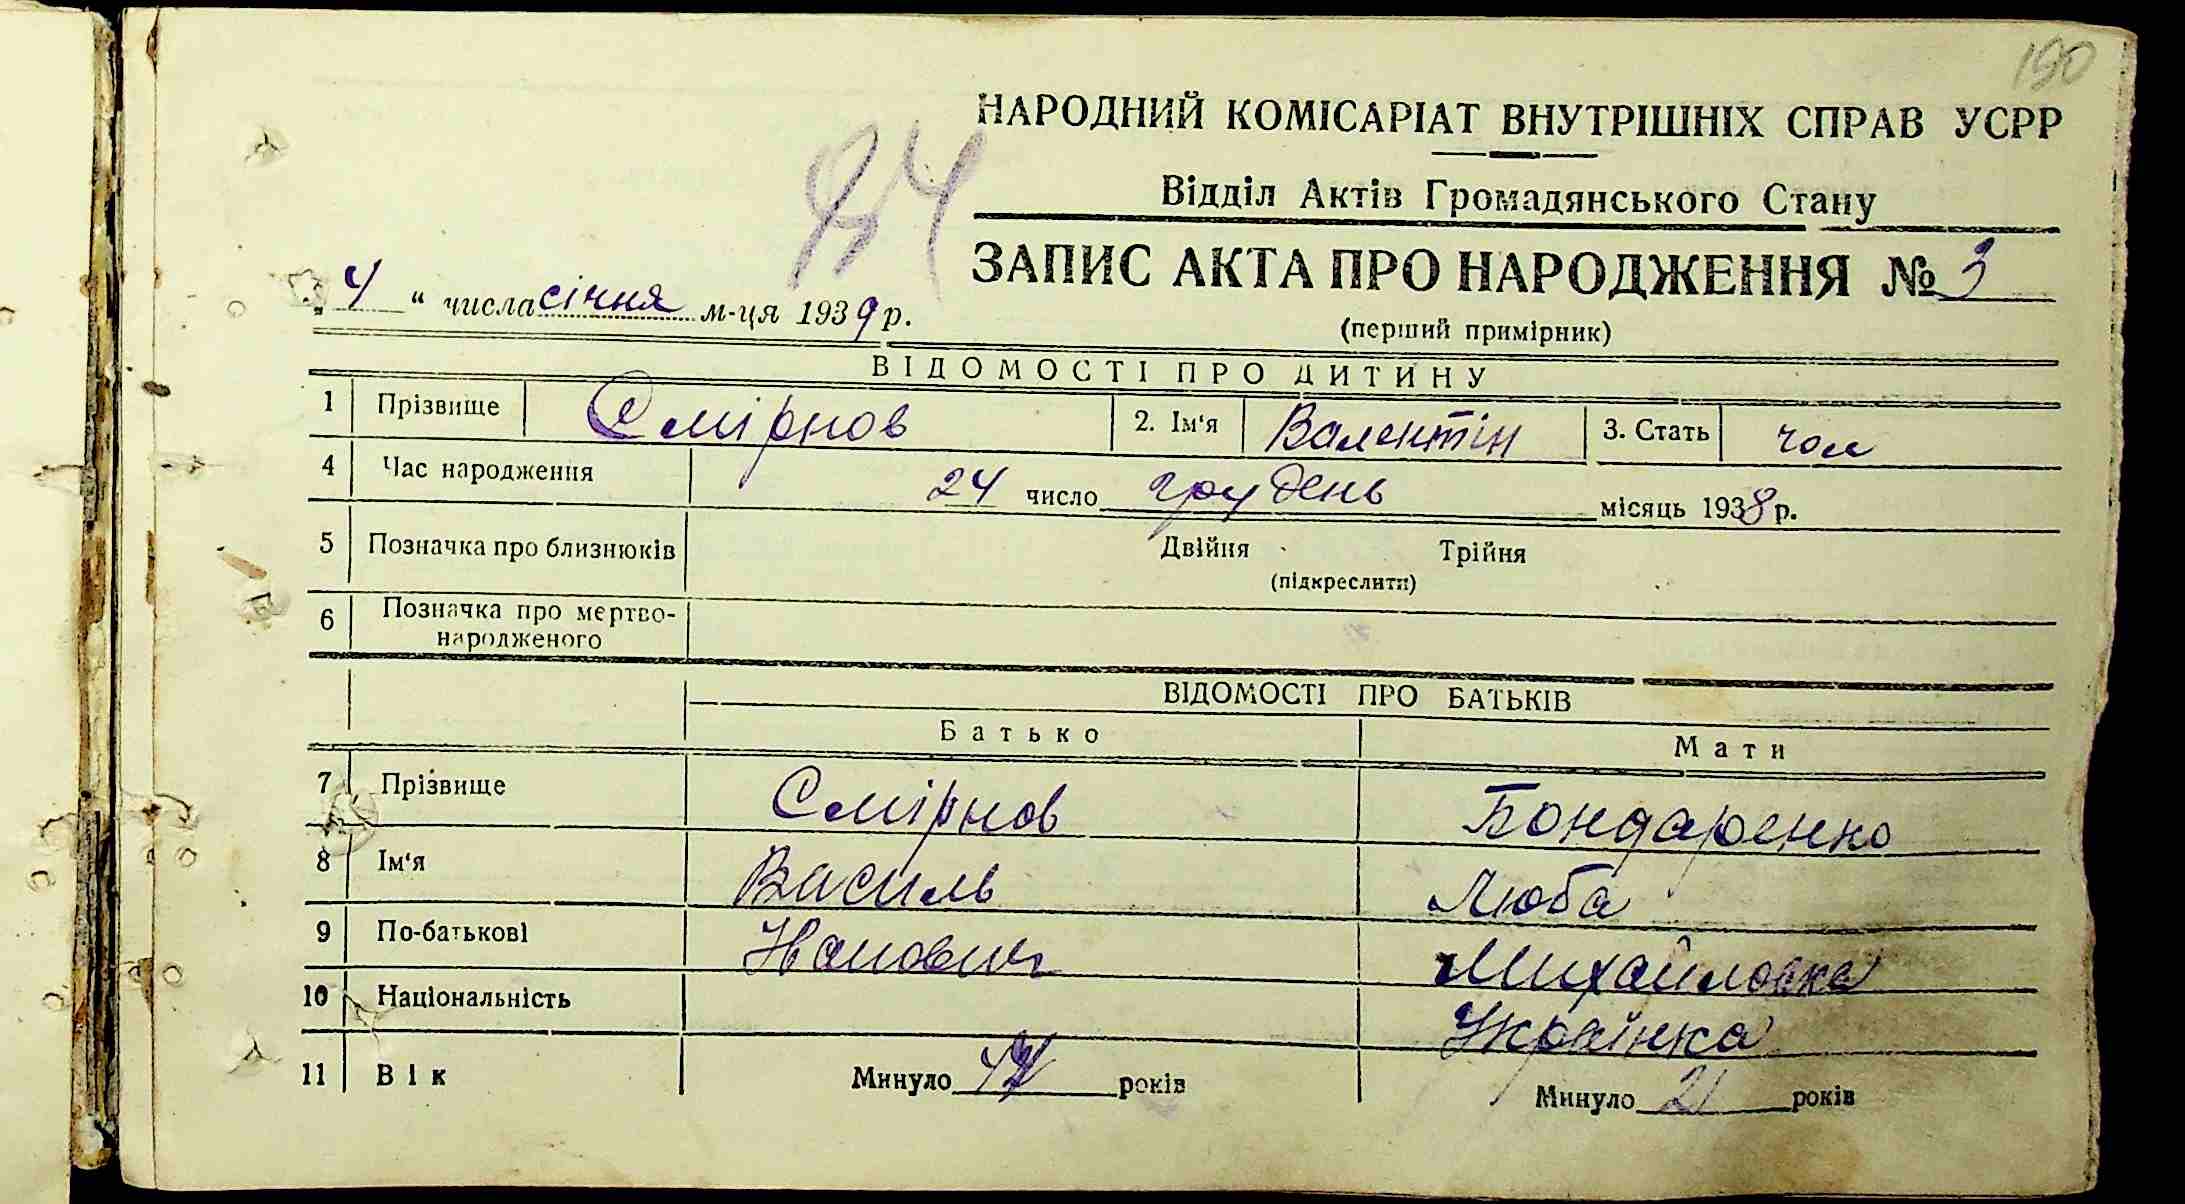 190
НАРОДНИЙ КОМІСАРІАТ ВНУТРІШНІХ СПРАВ УСРР
Відділ Актів Громадянського Стану
ЗАПИС АКТА ПРО НАРОДЖЕННЯ № 3
„ 4 “ числа січня м-ця 1939 р.
(перший примірник)
ВІДОМОСТІ ПРО ДИТИНУ
1 Прізвище Смірнов 2. Ім'я Валентін 3. Стать чол
4 Час народження 24 число грудень місяць 1938 р.
5 Позначка про близнюків Двійня Трійня
(підкреслити)
6 Позначка про мертво-
народженого
ВІДОМОСТІ ПРО БАТЬКІВ
Батько Мати
7 Прізвище Смірнов Бондаренко
8 Ім'я Василь Люба
9 По-батькові Михайловна
10 Національність Українка
11 Вік Минуло років Минуло 21 років